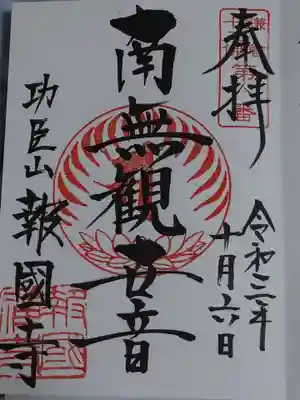 奉拝
令和三年
十月六日
南無観世音
功臣山
報國寺